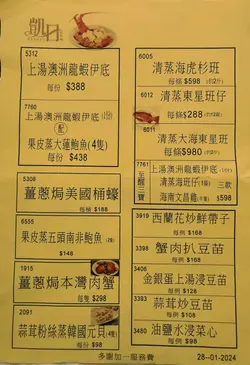 凱
5312
上湯澳洲龍蝦伊底
每份 $388
7760
上湯澳洲龍蝦伊底
配
果皮蒸大蓮鮑魚(4隻)
每份 $438
5308
薑蔥焗美國桶蠔
每桶 $188
6555
果皮蒸五頭南非鮑魚
$148
1915
薑蔥焗本灣肉蟹
每隻 $298
2091
蒜茸粉絲蒸韓國元貝
$98
6005
清蒸海虎杉班
每條 $598
清蒸東星班仔
每條$288
6011
清蒸大海東星班
每條$980
7761
上湯澳洲龍蝦伊底
清蒸海班仔
海南文昌雞
三款
$598
3919
西蘭花炒鮮帶子
每例 $168
3398
蟹肉扒豆苗
每例 $138
3406
金銀蛋上湯浸豆苗
每例 $108
3393
蒜茸炒豆苗
每例 $108
3480
油鹽水浸菜心
每例 $98
多謝加一服務費
28-01-2024